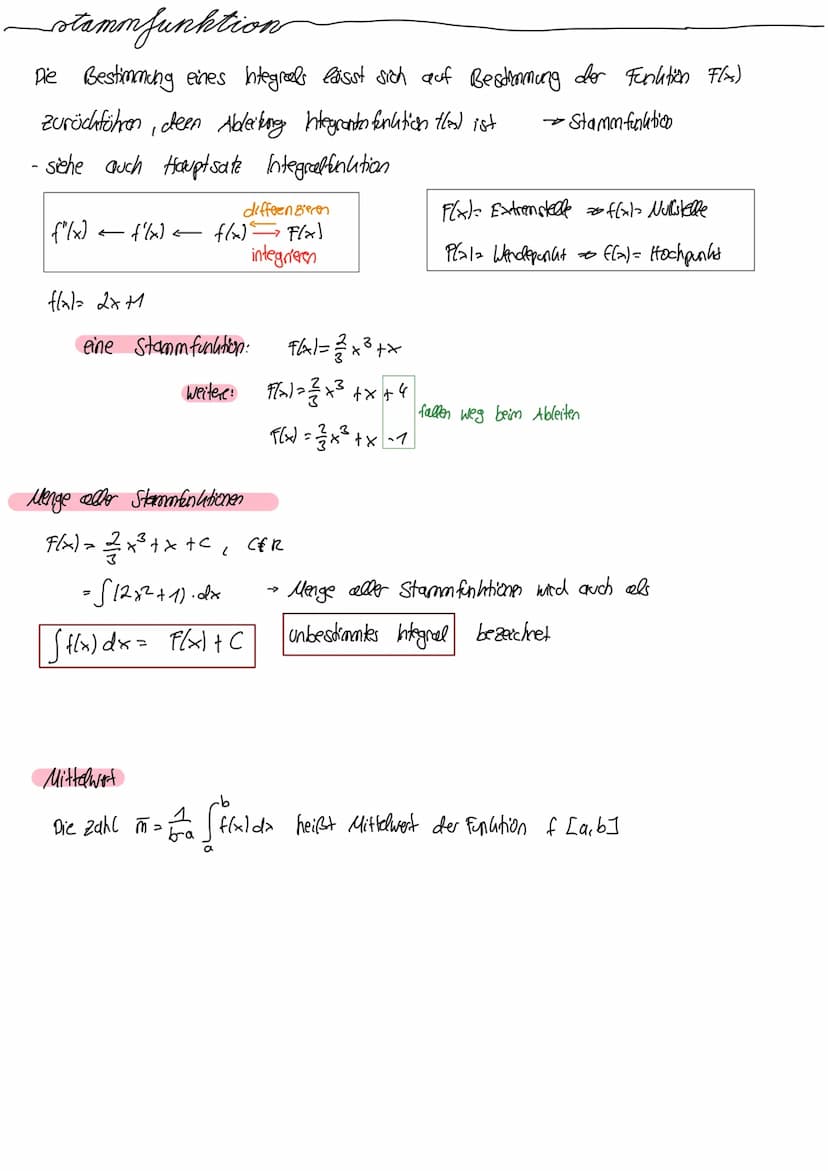 Stammfunktion
Die Bestimmung eines Integrals lässt sich auf Bestimmung der Funktion F(x)
zurückführen, deen Ableitung Integrandenfunktion f(x) ist → Stammfunktion
- siehe auch Hauptsatz Integralfunktion
differenzieren
f''(x) ← f'(x) ← f(x) ⇄ F(x)
integrieren
F(x) = Extremstelle ⇒ f(x) = Nullstelle
F(x) = Wendepunkt ⇒ f(x) = Hochpunkt
f(x) = 2x+1
eine Stammfunktion: F(x) = 2/3 x³ + x
weitere: F(x) = 2/3 x³ + x + 4
fallen weg beim Ableiten
F(x) = 2/3 x³ + x - 1
Menge aller Stammfunktionen
F(x) = 2/3 x³ + x + C, C∈R
= ∫(2x²+1)·dx → Menge aller Stammfunktionen wird auch als
∫f(x) dx = F(x) + C unbestimmtes Integral bezeichnet
Mittelwert
Die Zahl m̅ = 1/(b-a) ∫ₐᵇ f(x) dx heißt Mittelwert der Funktion f [a,b]